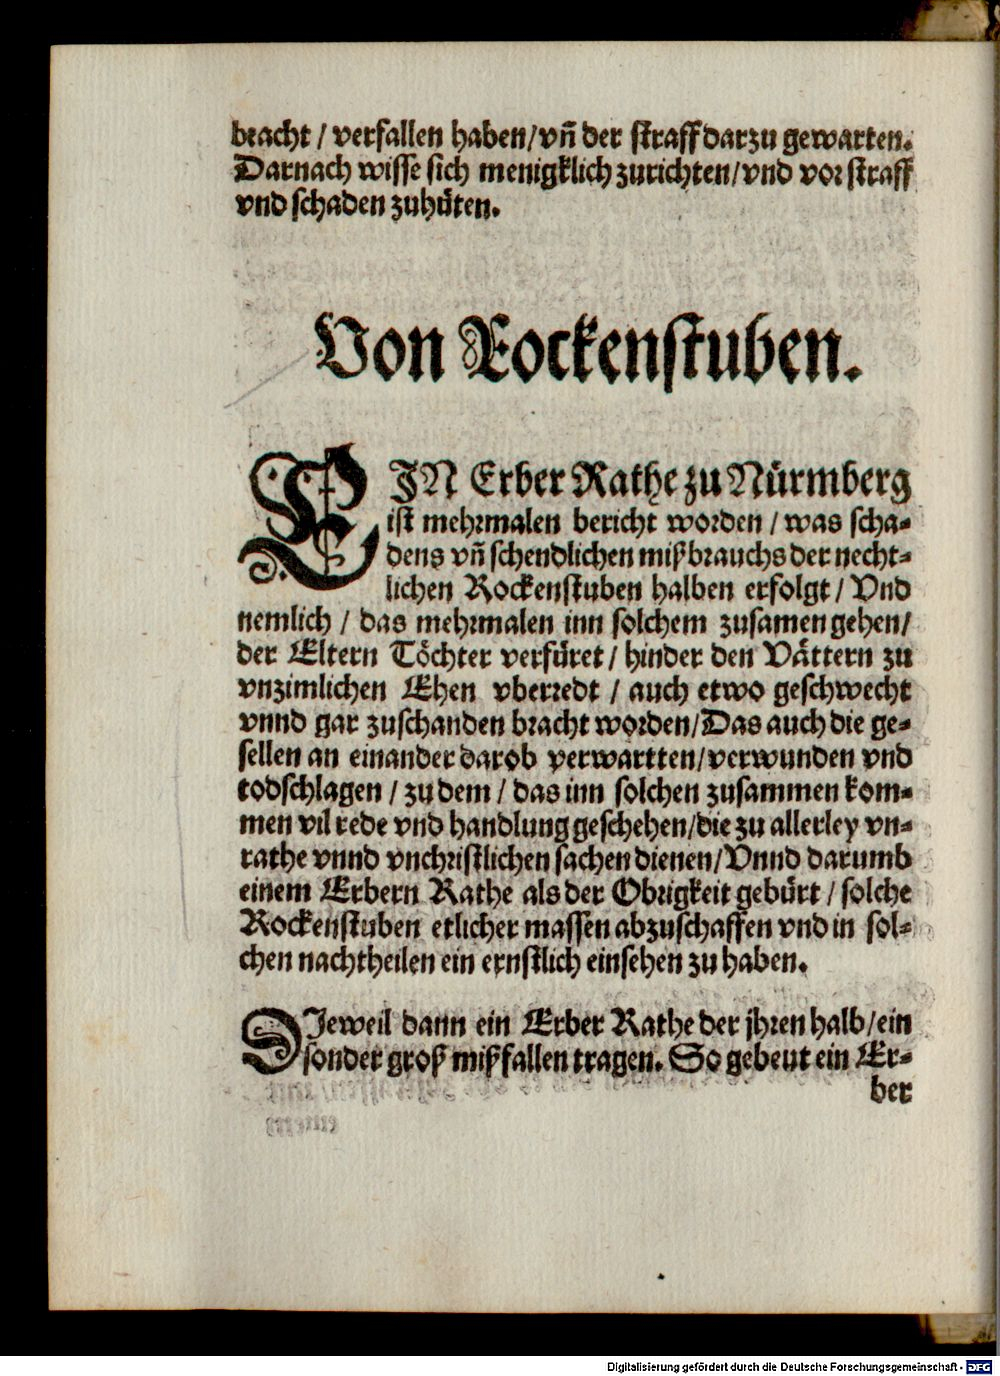 bracht / verfallen haben/vñ der straff darzu gewarten.
Darnach wisse sich menigklich zurichten/vnd vor straff
vnd schaden zuhüten.
Von Rockenstuben.
EIN Erber Rathe zu Nürmberg
ist mehrmalen bericht worden / was scha-
dens vñ schendlichen mißbrauchs der necht-
lichen Rockenstuben halben erfolgt / Vnd
nemlich / das mehrmalen inn solchem zusamen gehen/
der Eltern Töchter verfüret / hinder den Vättern zu
vnzimlichen Ehen vberredt / auch etwo geschwecht
vnnd gar zuschanden bracht worden/Das auch die ge-
sellen an einander darob verwartten/verwunden vnd
todschlagen / zu dem / das inn solchen zusammen kom-
men vil rede vnd handlung geschehen/die zu allerley vn-
rathe vnnd vnchristlichen sachen dienen/Vnnd darumb
einem Erbern Rathe als der Obrigkeit gebürt / solche
Rockenstuben etlicher massen abzuschaffen vnd in sol-
chen nachtheilen ein ernstlich einsehen zu haben.
DIeweil dann ein Erber Rathe der jhren halb/ein
sonder groß mißfallen tragen. So gebeut ein Er-
ber
Digitalisierung gefördert durch die Deutsche Forschungsgemeinschaft - DFG